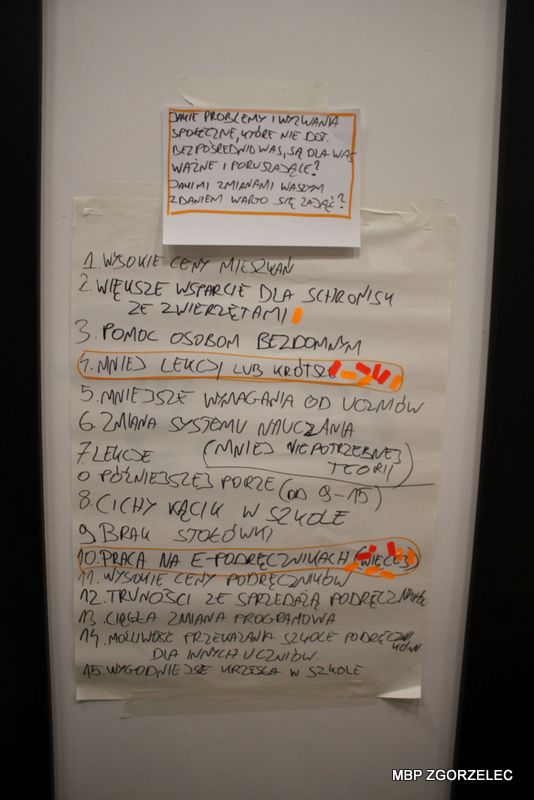 JAKIE PROBLEMY I WYZWANIA
SPOŁECZNE, KTÓRE NIE DOT.
BEZPOŚREDNIO WAS, SĄ DLA WAS
WAŻNE I PORUSZAJĄCE?
JAKIMI ZMIANAMI WASZYM
ZDANIEM WARTO SIĘ ZAJĄĆ?
1. WYSOKIE CENY MIESZKAŃ
2. WIĘKSZE WSPARCIE DLA SCHRONISK
ZE ZWIERZĘTAMI
3. POMOC OSOBOM BEZDOMNYM
4. MNIEJ LEKCJI LUB KRÓTSZE
5. MNIEJSZE WYMAGANIA OD UCZNIÓW
6. ZMIANA SYSTEMU NAUCZANIA
(MNIEJ NIEPOTRZEBNEJ
TEORII)
7. LEKCJE
O PÓŹNIEJSZEJ PORZE (OD 9-15)
8. CICHY KĄCIK W SZKOLE
9. BRAK STOŁÓWKI
10. PRACA NA E-PODRĘCZNIKACH (WIĘCEJ)
11. WYSOKIE CENY PODRĘCZNIKÓW
12. TRUNOŚCI ZE SPRZEDAŻĄ PODRĘCZNIKÓW
13. CIĄGŁA ZMIANA PROGRAMOWA
14. MOŻLIWOŚĆ PRZEKAZANIA SZKOLE PODRĘCZNI
KÓW
DLA INNYCH UCZNIÓW
15. WYGODNIEJSZE KRZESŁA W SZKOLE
MBP ZGORZELEC